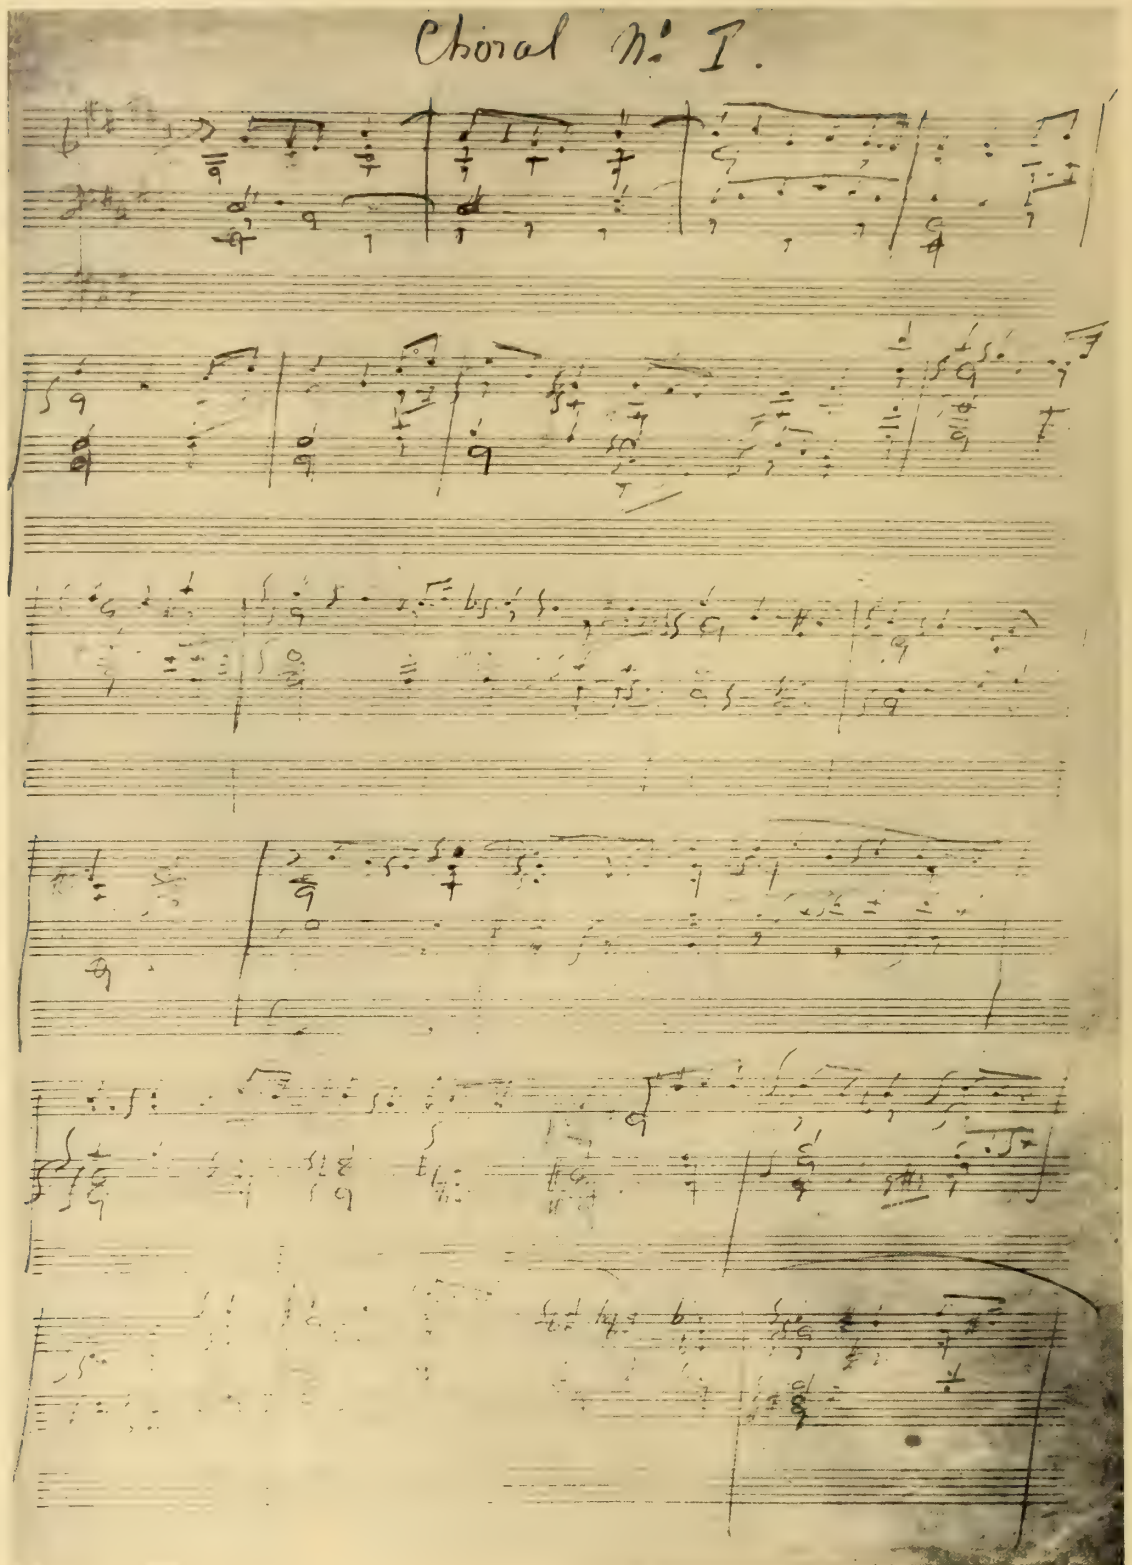 Choral Nº I.